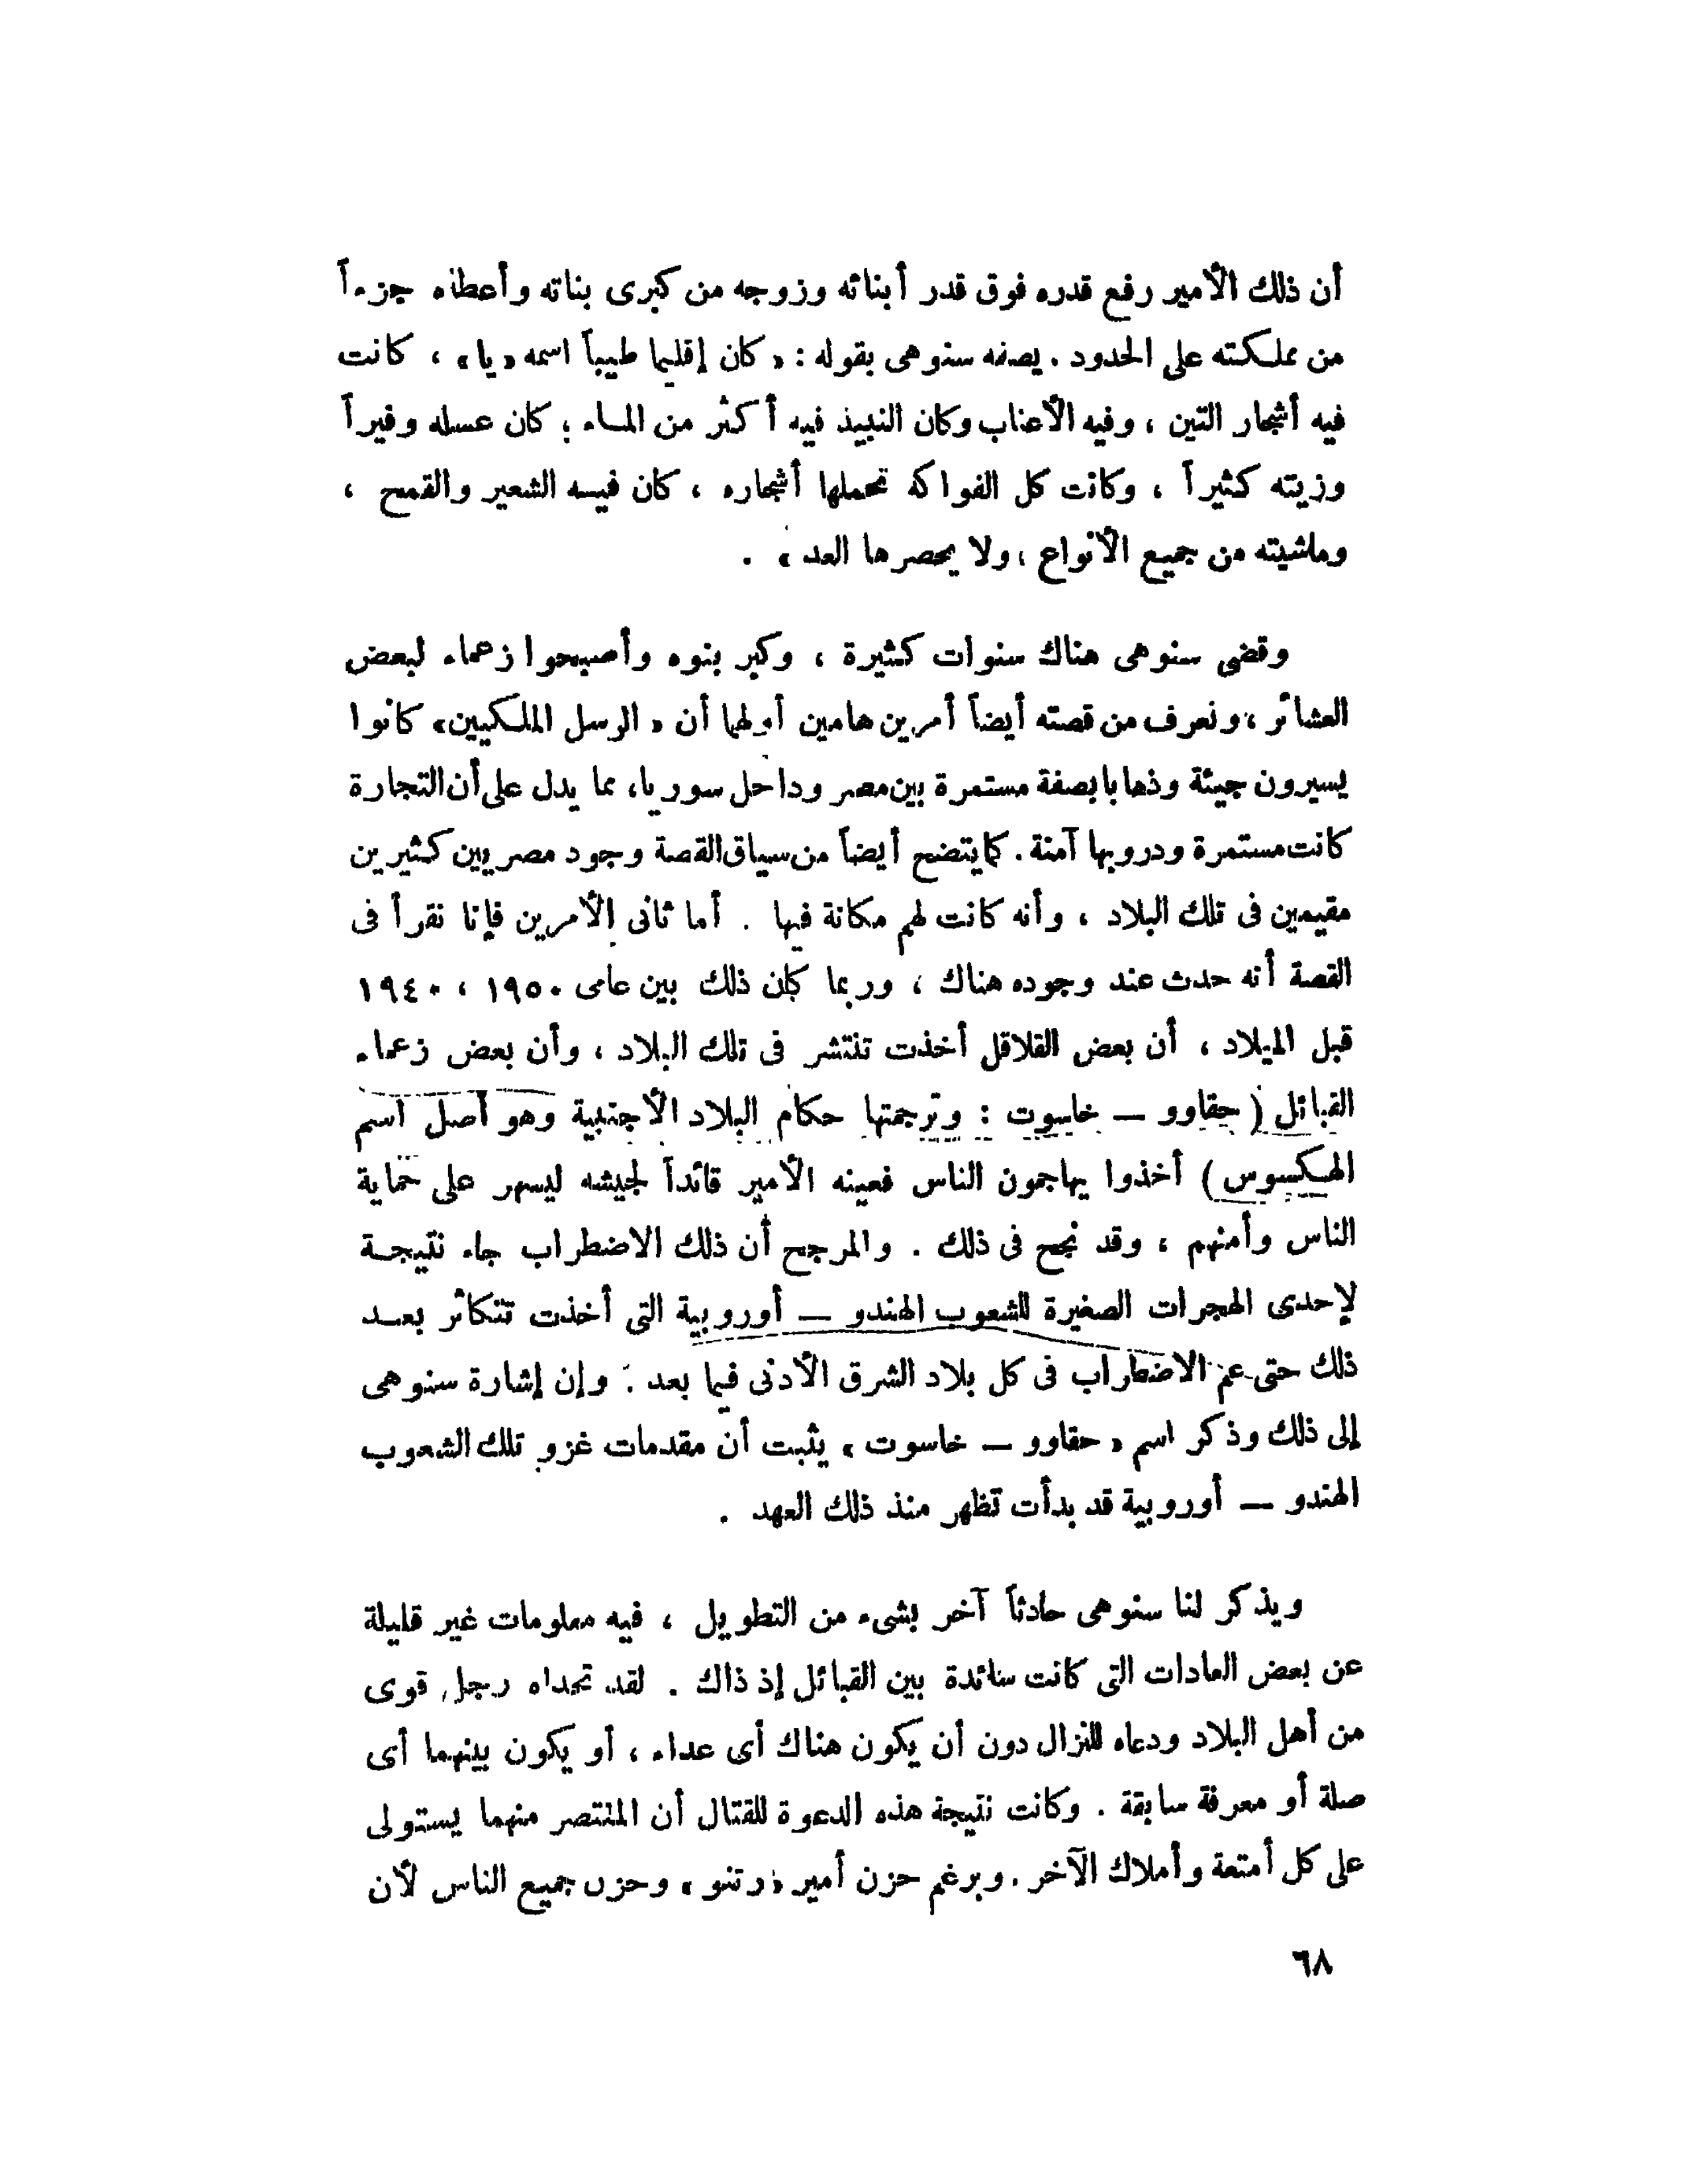 أن ذلك الأمير رفع قدره فوق قدر أبنائه وزوجه من كبرى بناته وأعطاه جزءاً
من مملكته على الحدود . يصفه سنوهى بقوله : « كان إقليما طيباً اسمه « يا » ، كانت
فيه أشجار التين ، وفيه الأعناب وكان النبيذ فيه أكثر من الماء ؛ كان عسله وفيراً
وزيته كثيراً ، وكانت كل الفواكه تحملها أشجاره ، كان فيه الشعير والقمح ،
وماشيته من جميع الأنواع ، ولا يحصرها العد » .
وقضى سنوهى هناك سنوات كثيرة ، وكبر بنوه وأصبحوا زعماء لبعض
العشائر ، ونعرف من قصته أيضاً أمرين هامين أولهما أن « الرسل الملكيين » كانوا
يسيرون جيئة وذهابا بصفة مستمرة بين مصر وداخل سوريا ، مما يدل على أن التجارة
كانت مستمرة ودروبها آمنة . كما يتضح أيضاً من سياق القصة وجود مصريين كثيرين
مقيمين فى تلك البلاد ، وأنه كانت لهم مكانة فيها . أما ثانى الأمرين فإنا نقرأ فى
القصة أنه حدث عند وجوده هناك ، وربما كان ذلك بين عامى ١٩٥٠ ، ١٩٤٠
قبل الميلاد ، أن بعض القلاقل أخذت تنتشر فى تلك البلاد ، وأن بعض زعماء
القبائل ( حقاوو — خاسوت : وترجمتها حكام البلاد الأجنبية وهو أصل اسم
الهكسوس ) أخذوا يهاجمون الناس فعينه الأمير قائداً لجيشه ليسهر على حماية
الناس وأمنهم ، وقد نجح فى ذلك . والمرجح أن ذلك الاضطراب جاء نتيجة
لإحدى الهجرات الصغيرة للشعوب الهندو — أوروبية التى أخذت تتكاثر بعد
ذلك حتى عم الاضطراب فى كل بلاد الشرق الأدنى فيما بعد . وإن إشارة سنوهى
إلى ذلك وذكر اسم « حقاوو — خاسوت » يثبت أن مقدمات غزو تلك الشعوب
الهندو — أوروبية قد بدأت تظهر منذ ذلك العهد .
ويذكر لنا سنوهى حادثاً آخر بشىء من التطويل ، فيه معلومات غير قليلة
عن بعض العادات التى كانت سائدة بين القبائل إذ ذاك . لقد تحداه رجل قوى
من أهل البلاد ودعاه للنزال دون أن يكون هناك أى عداء ، أو يكون بينهما أى
صلة أو معرفة سابقة . وكانت نتيجة هذه الدعوة للقتال أن المنتصر منهما يستولى
على كل أمتعة وأملاك الآخر . وبرغم حزن أمير « رتنو » وحزن جميع الناس لأن
٦٨